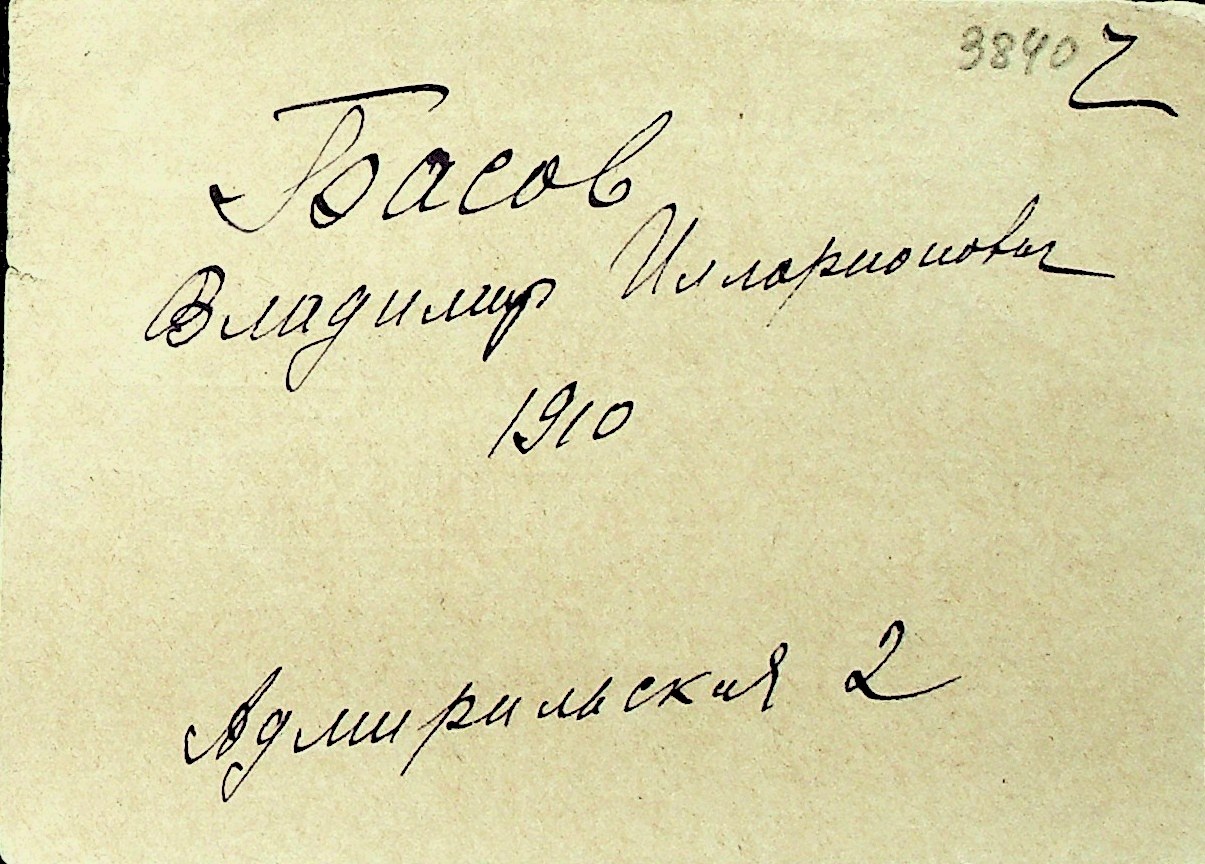 3840 2
Басов
Владимир Илларионович
1910
Адмиральская 2